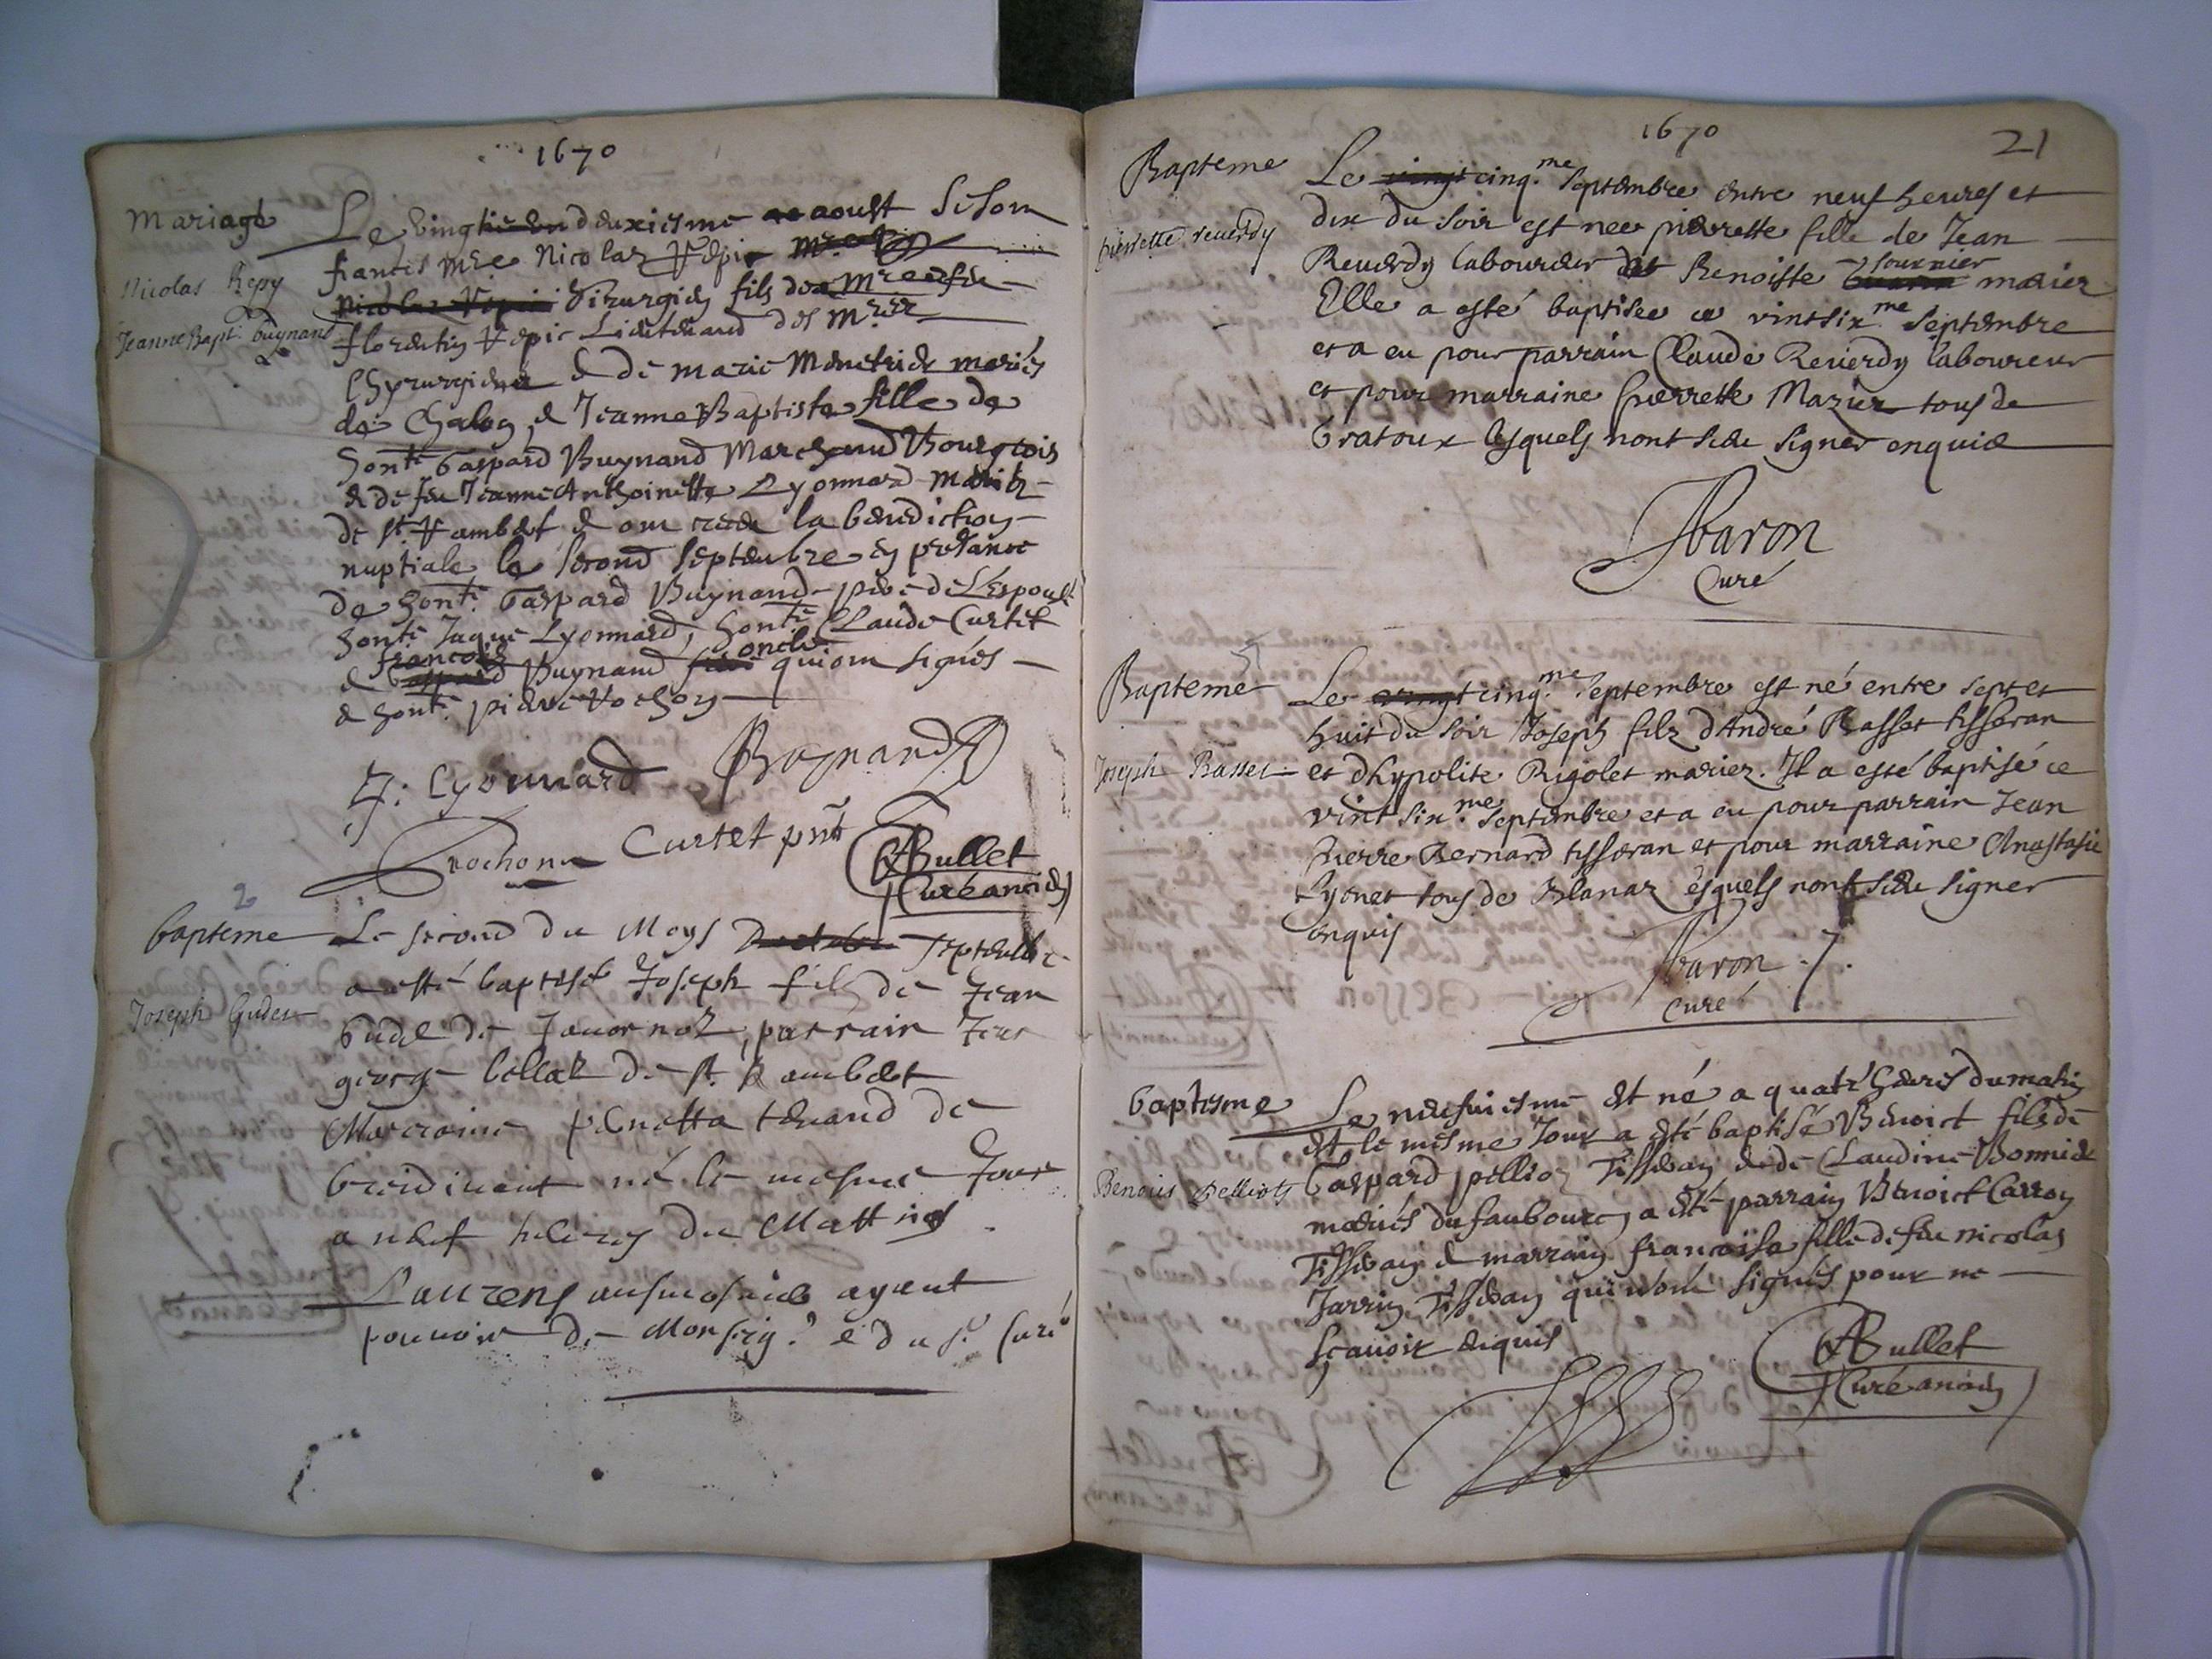 1670
Mariage
Nicolas Repy
Jeanne Bapt. buynand
Le vingt deuxiesme aoust se som
fiancés Mre Nicolas Repie
Chirurgien fils de feu
florentin Repie Lieutenand des Mres
Chyrurgiens & de marie mariés
de Chalon & Jeanne Baptiste fille de
hont. Gaspard Buynand Marchand Bourgeois
& de feu Jeanne Anthoinette Lyonnard mariés
de st Rambert & om receu la benediction
nuptiale le second septembre en presance
de hont. Gaspard Buynand pere de L'espouse
hont. Jaque Lyonnard, hont. Claude Curtet
& francois Buynand oncle qui om signés
& hont. pierre Rochon
J: Lyonnard Buynand
Rochon Curtet pnt
Bullet
Curé ancien
2
bapteme
Joseph Guder
Le second du Moys septembre
a esté baptisé Joseph fils de Jean
Gudel de Jauornoz, parrain Jean
george bellat de st. Rambert
Marraine penetta tenand de
breidinent né le mesme Jour
a neuf heures du Mattin
Laurens ausmosnier ayant
pouuoir de Monseig.r e du sr Curé
1670
21
Bapteme
pierrette reuerdy
Le cinq.me Septembre entre neuf heures et
dix du soir est nee pierrette fille de Jean
Reuerdy laboureur et Benoiste fournier mariez
Elle a esté baptisee ce vintsix.me Septembre
et a eu pour parrain Claude Reuerdy laboureur
et pour marraine pierrette Mazuer tous de
Gratoux lesquels nont sceu signer enquis
Baron
Curé
Bapteme
Joseph Basset
Le cinq.me Septembre est né entre sept et
huit du soir Joseph filz d'André Basset tisseran
et dhypolite Rigolet mariez. Il a esté baptisé ce
vint six.me Septembre et a eu pour parrain Jean
pierre Bernard tisseran et pour marraine Anastasie
Lyonet tous de Blanaz esquels nont sceu signer
enquis
Baron
curé
baptesme
Benoist Pelliots
Le neufuiesme est né a quatr' heures du matin
et le mesme Jour a esté baptisé Benoict fils de
Gaspard pellioz Tisseran & de Claudine Bonnide
mariés du faubourg a esté parrain Benoict Carron
Tisseran & marraine francoise fille de feu nicolas
Jarrin Tisseran qui nom signés pour ne
scauoir enquis
Bullet
Curé ancien